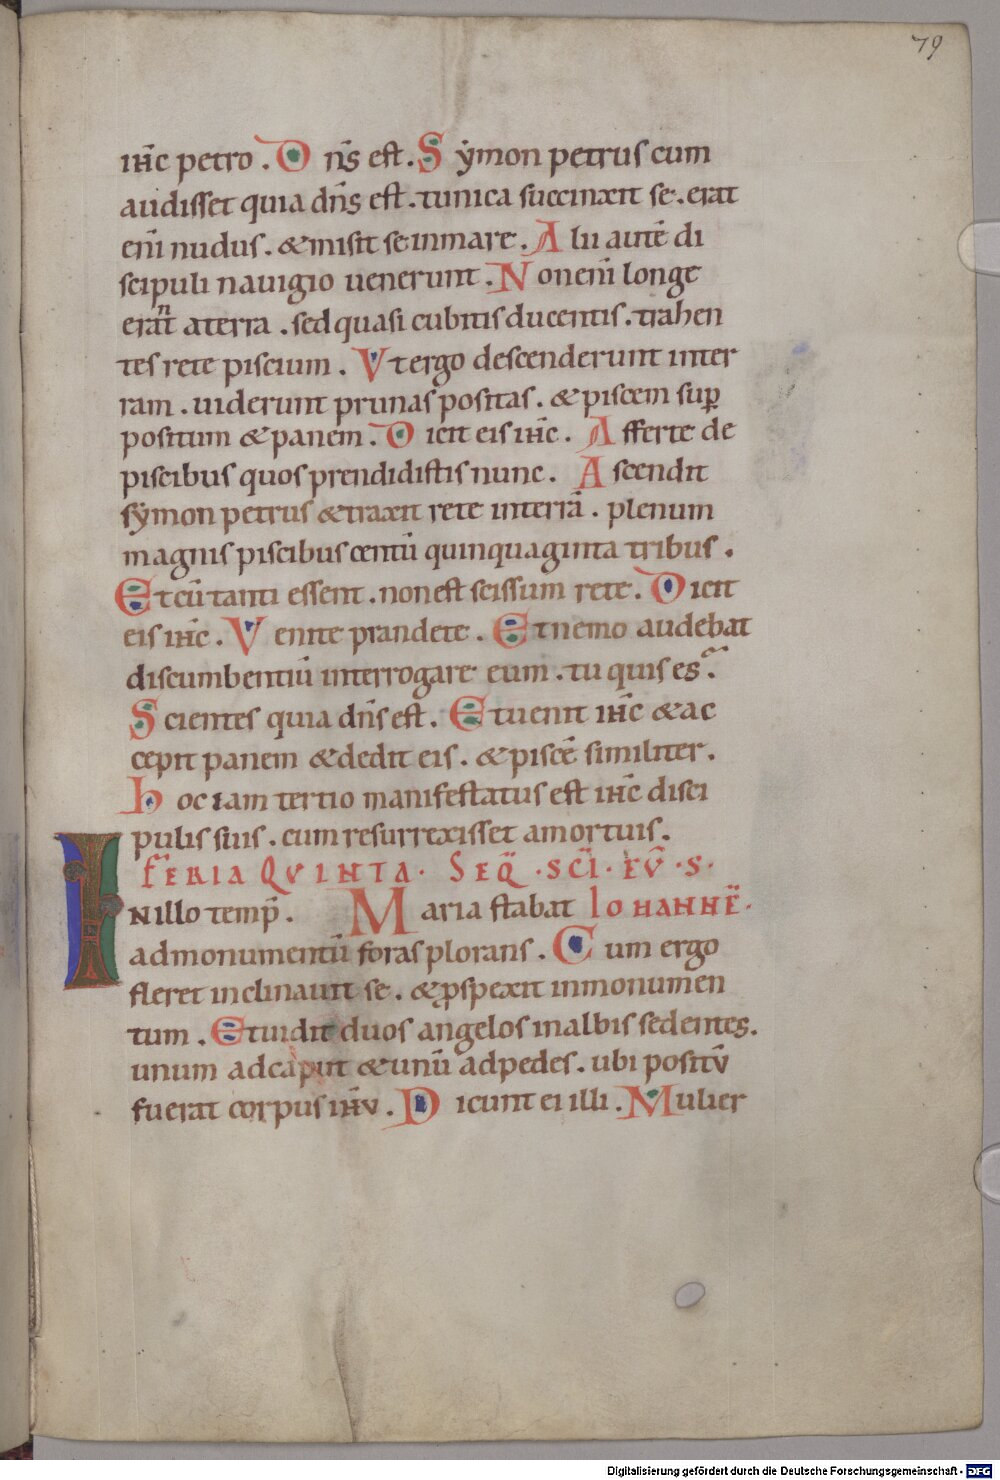 79
ih̅c petro . D n̅s est . Symon petrus cum
audisset quia dn̅s est . tunica succinxit se . erat
eni̅ nudus . & misit se in mare . Alii aute̅ di
scipuli nauigio uenerunt . Non eni̅ longe
erant a terra . sed quasi cubitis ducentis . trahen
tes rete piscium . Vt ergo descenderunt in ter
ram . uiderunt prunas positas . & piscem sup̅
positum & panem . Dicit eis ih̅c . Afferte de
piscibus quos prendidistis nunc . Ascendit
symon petrus & traxit rete in terra̅ . plenum
magnis piscibus centu̅ quinquaginta tribus .
Et cu̅ tanti essent . non est scissum rete . Dicit
eis ih̅c . Venite prandete . Et nemo audebat
discumbentiu̅ interrogare eum . tu quis es .
Scientes quia dn̅s est . Et uenit ih̅c & ac
cepit panem & dedit eis . & pisce̅ similiter .
Hoc iam tertio manifestatus est ih̅c disci
pulis suis . cum resurrexisset a mortuis .
FERIA QVINTA · SEQ̅ · SC̅I · EV̅ · S ·
IN illo temp̅ . Maria stabat IOHANNE̅ .
ad monumentu̅ foras plorans . Cum ergo
fleret inclinauit se . & ꝓspexit in monumen
tum . Et uidit duos angelos in albis sedentes .
unum ad caput & unu̅ ad pedes . ubi positv̅
fuerat corpus ih̅v . Dicunt ei illi . Mulier
Digitalisierung gefördert durch die Deutsche Forschungsgemeinschaft - DFG